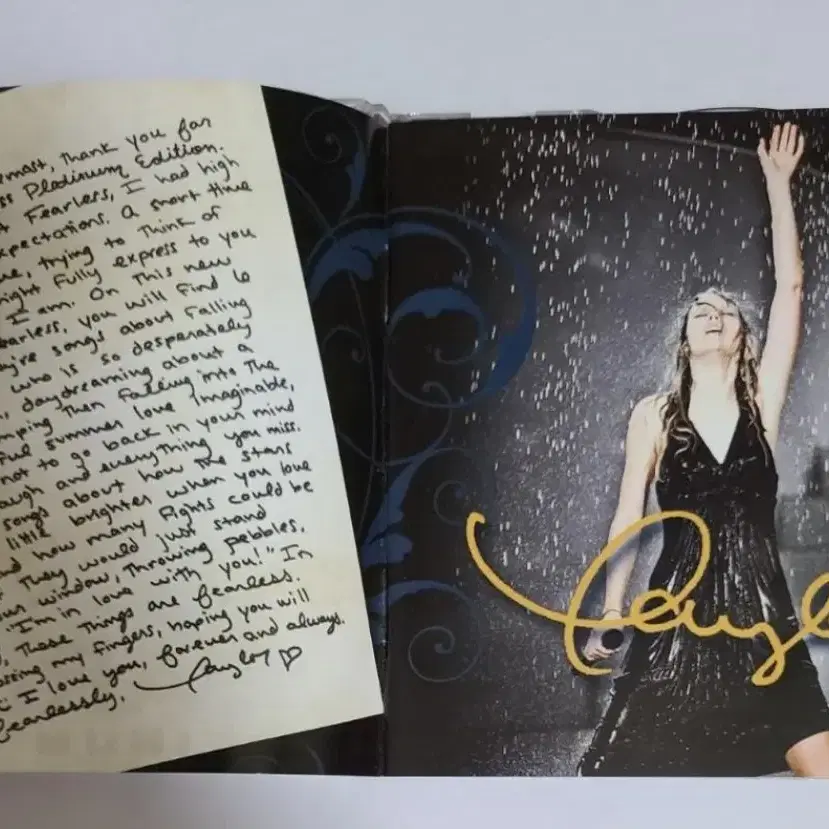 emost, Thank you for
ss Platinum Edition.
t Fearless, I had high
xpectations. A short time
ne, trying to Think of
might fully express to you
I am. On This new
earless, you will find 6
y're songs about falling
who is so desperately
, daydreaming about a
mping Then falling into The
ful summer love imaginable,
not to go back in your mind
augh and everything you miss.
songs about how The stars
little brighter when you love
nd how many fights could be
f They would just stand
our window, Throwing pebbles,
"I'm in love with you!" In
, These Things are fearless.
ossing my fingers, hoping you will
I love you, forever and always.
fearlessly,
Taylor
Taylo